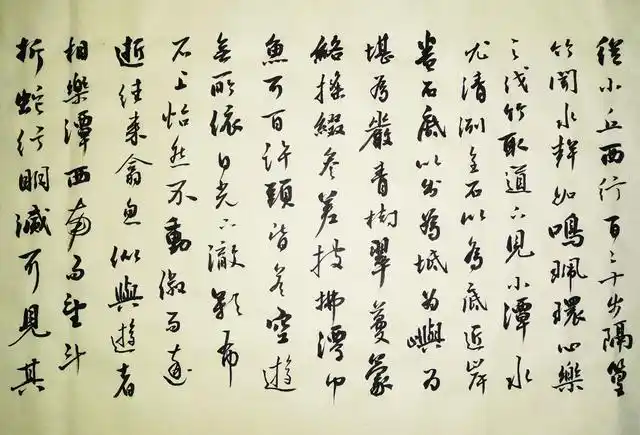 從小丘西行百二十步隔篁
竹聞水聲如鳴珮環心樂
之伐竹取道下見小潭水
尤清洌全石以為底近岸
卷石底以出為坻為嶼為
堪為巖青樹翠蔓蒙
絡搖綴參差披拂潭中
魚可百許頭皆若空遊
無所依日光下澈影布
石上怡然不動俶而遠
逝往來翕忽似與遊者
相樂潭西南而望斗
折蛇行明滅可見其